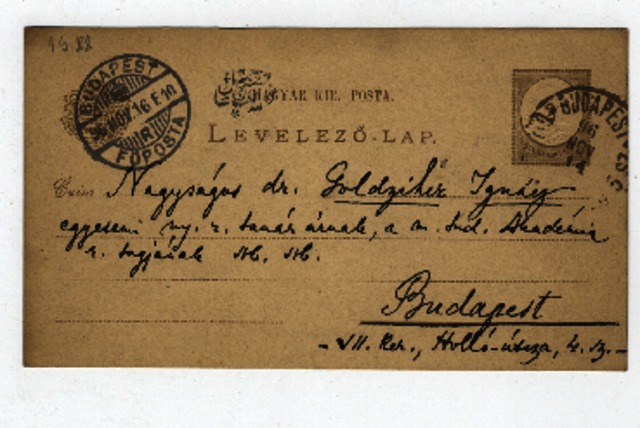 BUDAPEST
96 NOV. 16 E. 10
FŐPOSTA
MAGYAR KIR. POSTA.
LEVELEZŐ-LAP.
BUDAPEST
96
NOV
14
Czim Nagyságos dr. Goldziher Ignácz
egyetemi ny. r. tanár úrnak, a m. tud. Akadémia
r. tagjának stb. stb.
Budapest
- VII. Ker., Holló-utcza, 4. sz. -